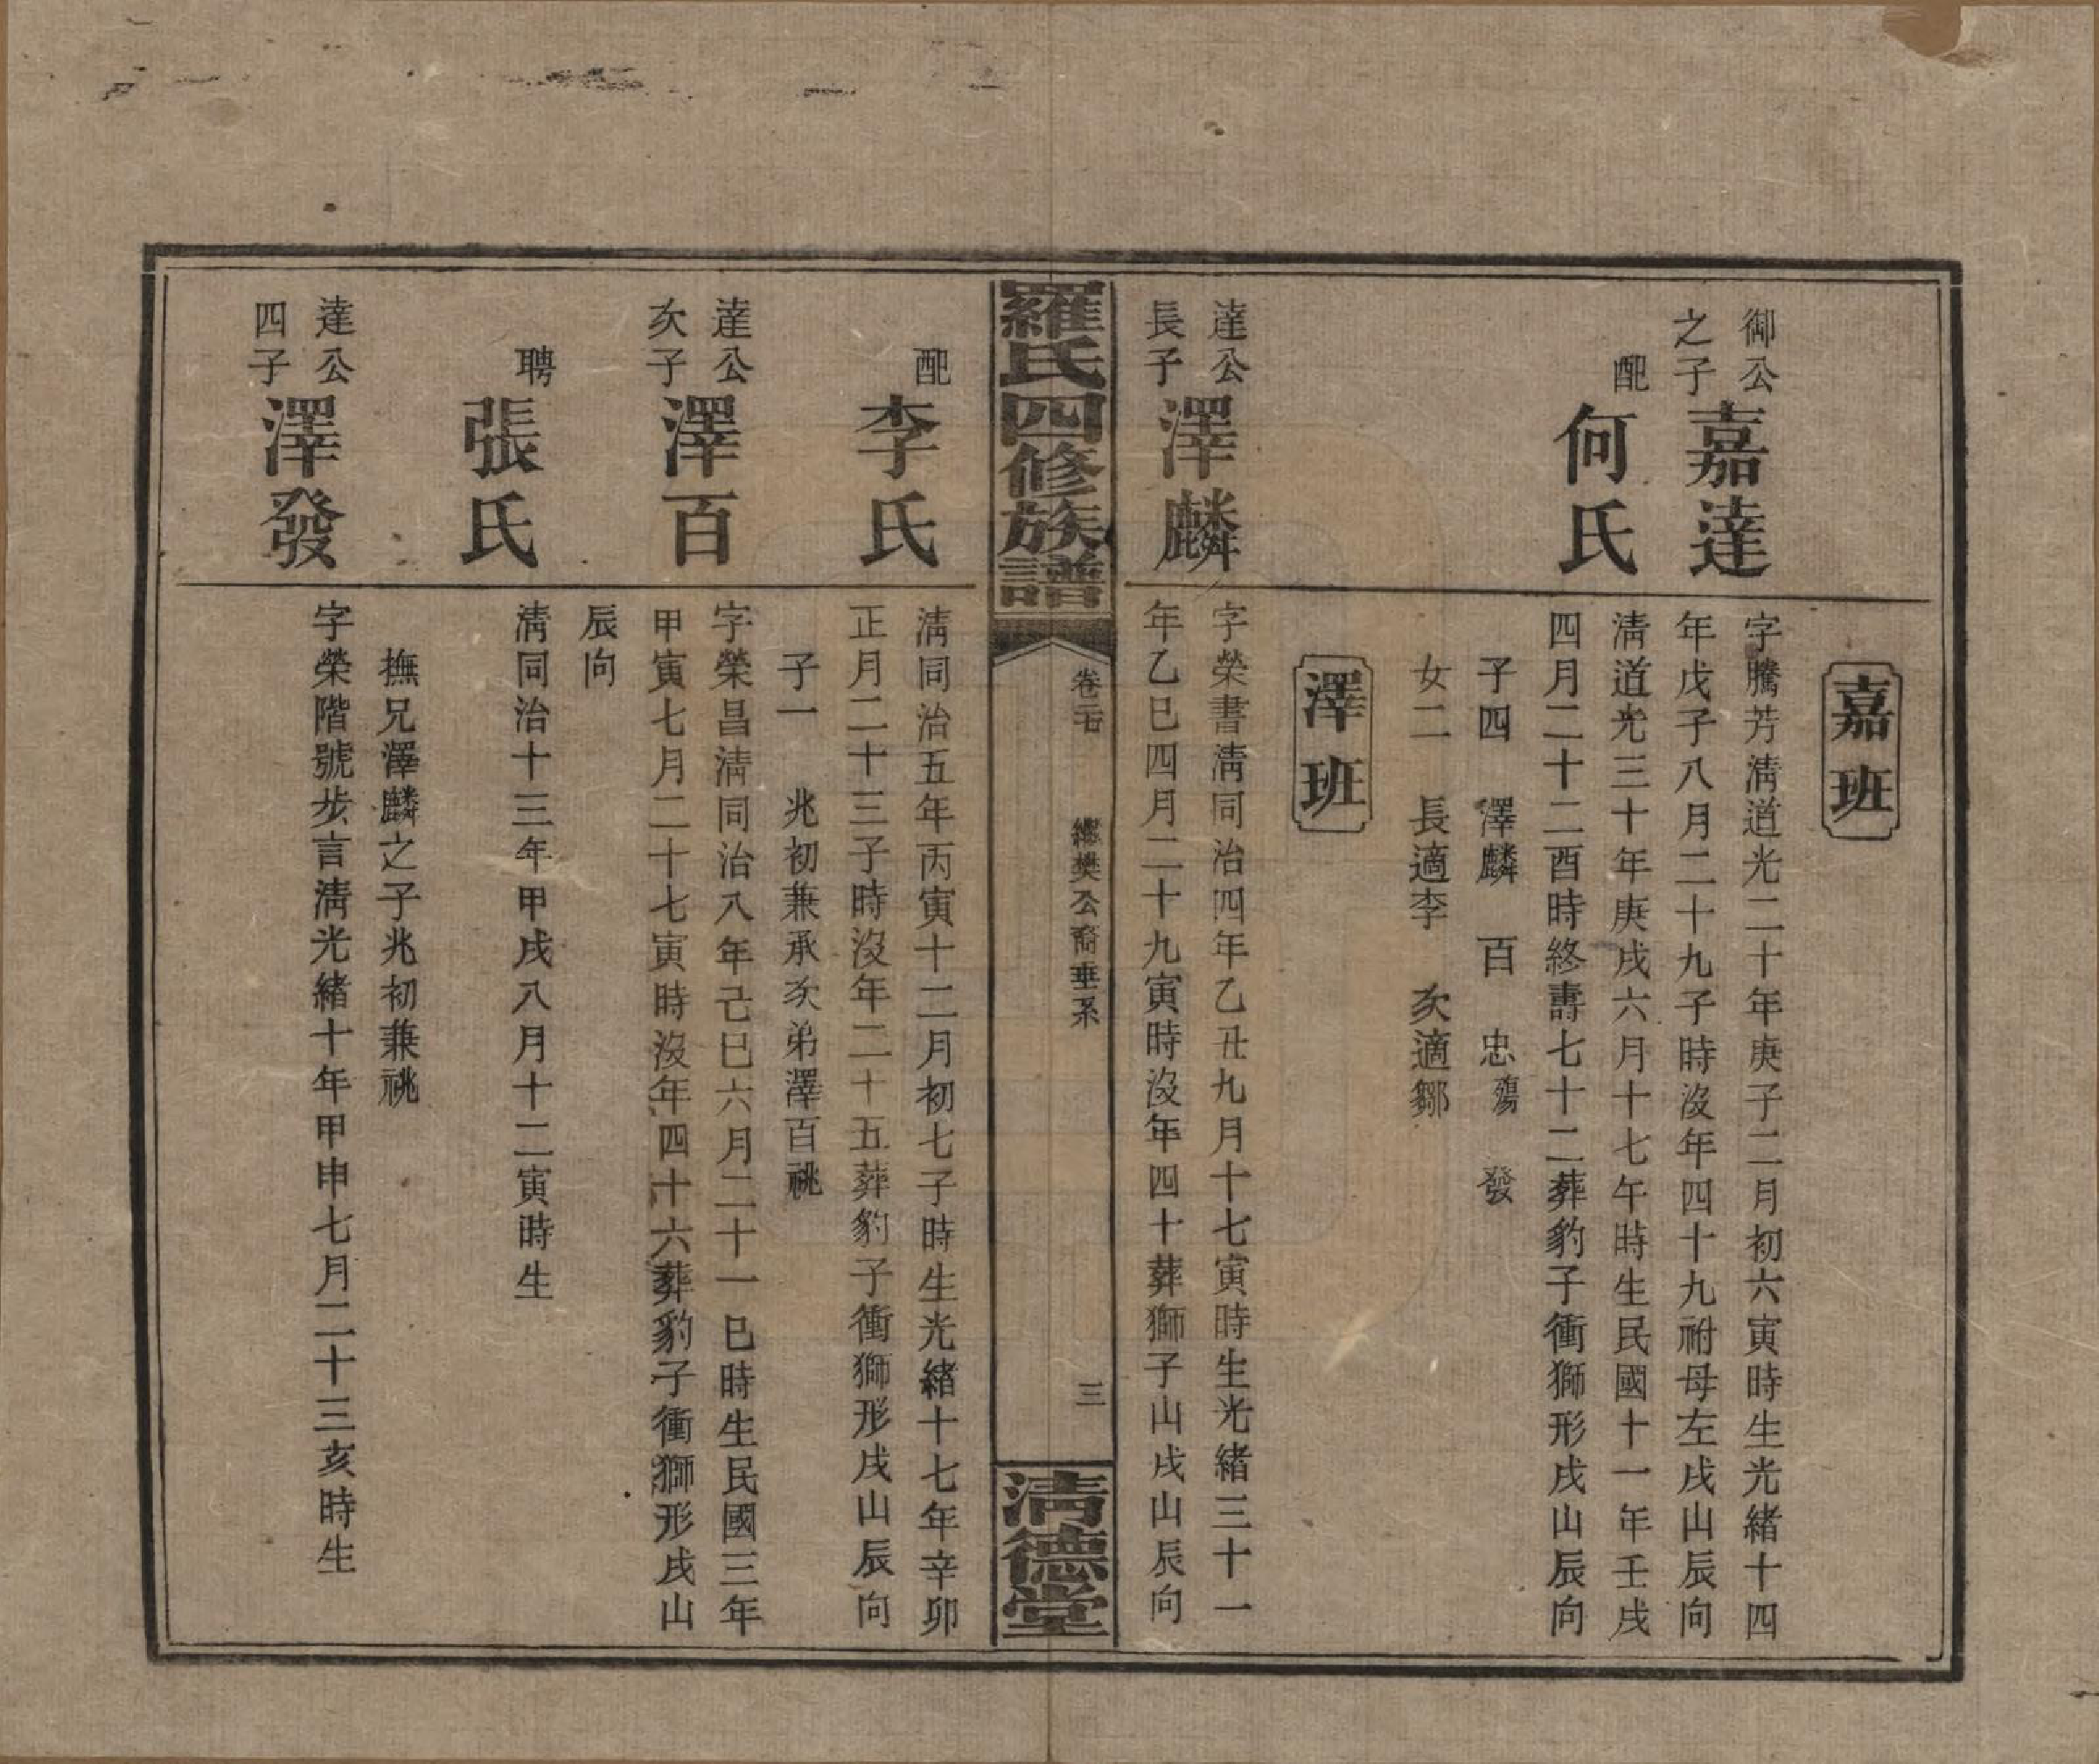 嘉班
御公之子
嘉達
字騰芳淸道光二十年庚子二月初六寅時生光緒十四
年戊子八月二十九子時沒年四十九祔母左戌山辰向
配
何氏
淸道光三十年庚戌六月十七午時生民國十一年壬戌
四月二十二酉時終壽七十二葬豹子衝獅形戌山辰向
子四 澤麟 百 忠殤 發
女二 長適李 次適鄒
澤班
達公長子
澤麟
字榮書淸同治四年乙丑九月十七寅時生光緒三十一
年乙巳四月二十九寅時沒年四十葬獅子山戌山辰向
羅氏四修族譜
樊公裔垂系
三
淸德堂
配
李氏
淸同治五年丙寅十二月初七子時生光緒十七年辛卯
正月二十三子時沒年二十五葬豹子衝獅形戌山辰向
子一 兆初兼承次弟澤百祧
達公次子
澤百
字榮昌淸同治八年己巳六月二十一巳時生民國三年
甲寅七月二十七寅時沒年四十六葬豹子衝獅形戌山
辰向
聘
張氏
淸同治十三年甲戌八月十二寅時生
撫兄澤麟之子兆初兼祧
達公四子
澤發
字榮階號步言淸光緒十年甲申七月二十三亥時生